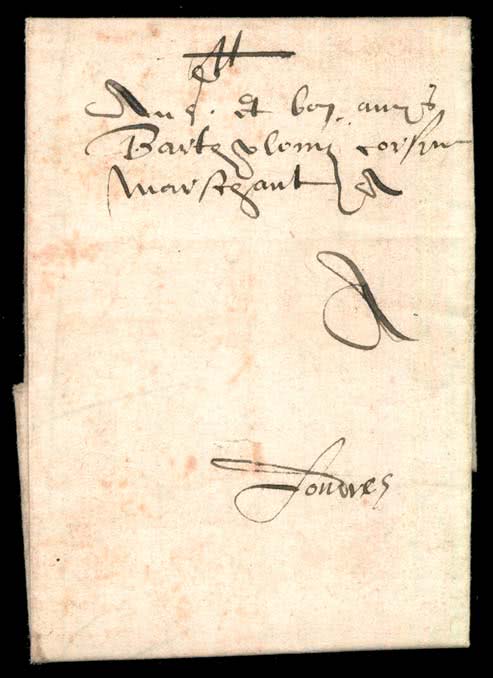 A mes. et bon amys
Barthelomi corsini
Marschant A
A
Londres